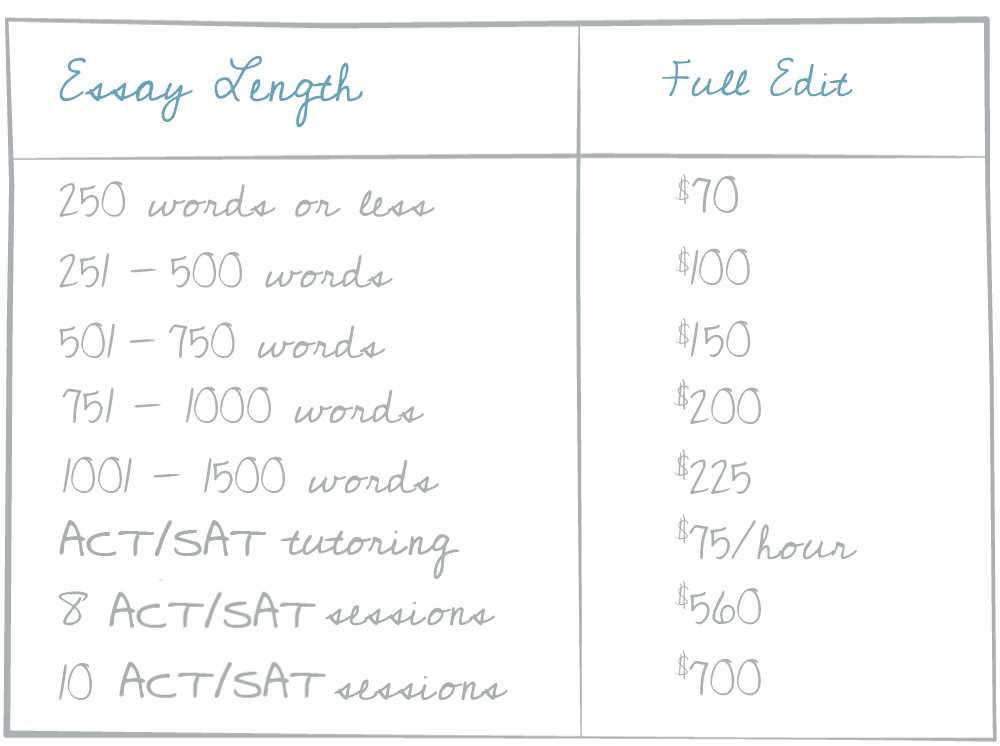 Essay Length Full Edit
250 words or less $70
251 – 500 words $100
501 – 750 words $150
751 – 1000 words $200
1001 – 1500 words $225
ACT/SAT tutoring $75/hour
8 ACT/SAT sessions $560
10 ACT/SAT sessions $700